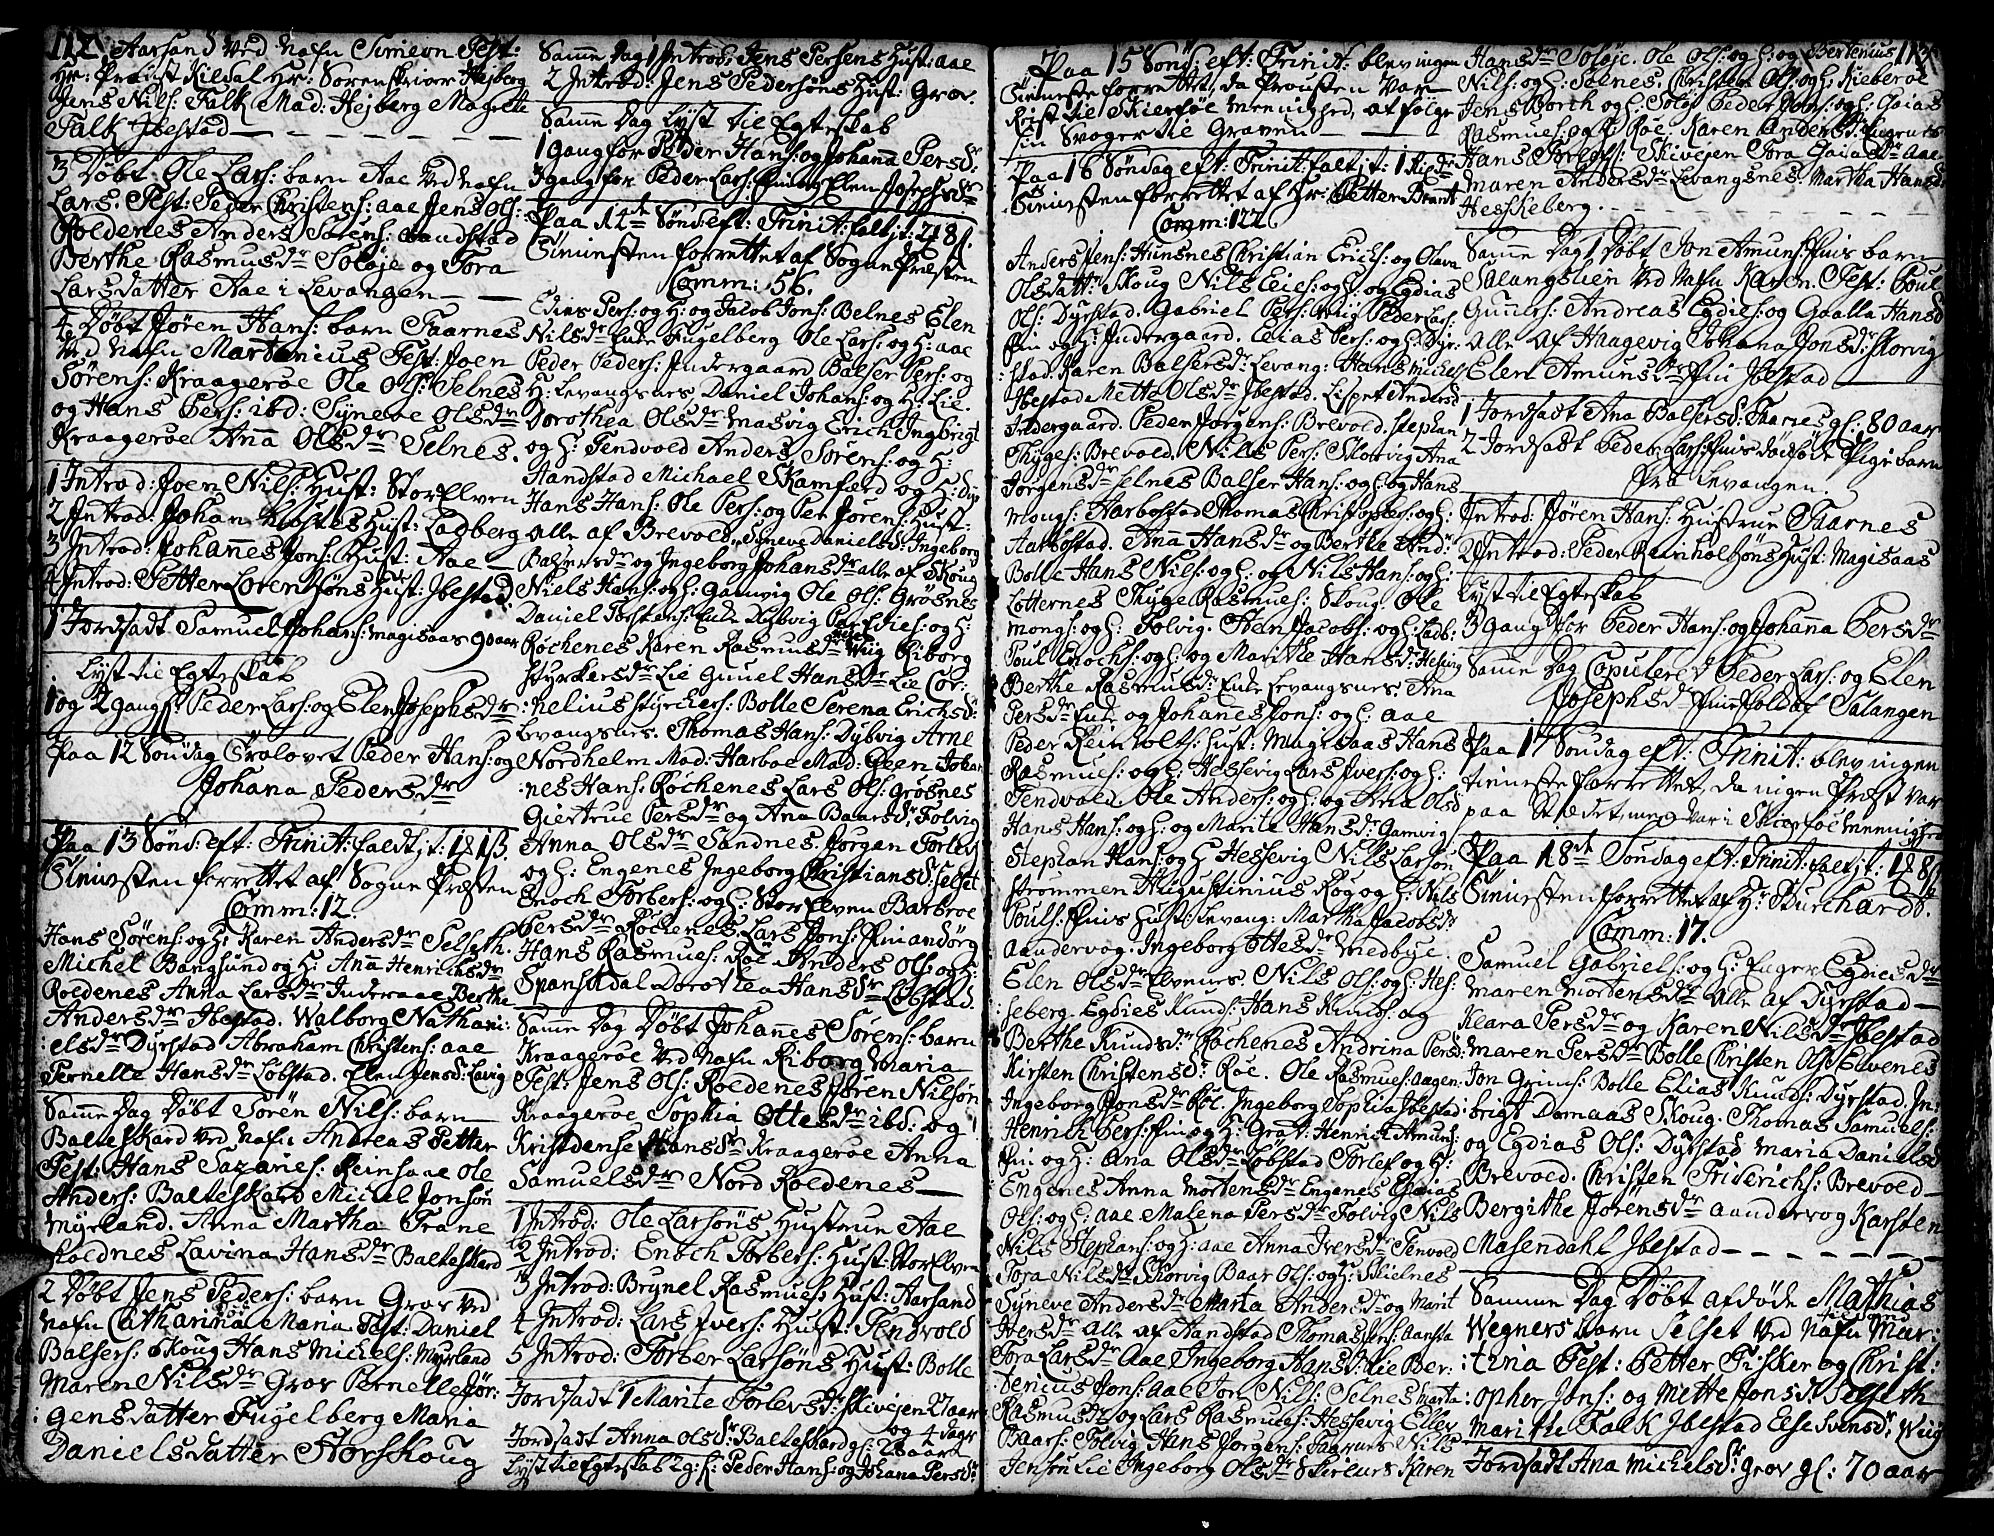 112. Aarsand Ved Nafn Simeon Test:
Hr: Proust Kildal Hr: Sorenskriver Heyberg
Jens Nils: Falk Mad: Hejberg Magrete
Falk Ibestad
3 Døbt Ole Lars: barn Aae Ved Nafn
Lars. Test: Peder Christens: aae Jens Ols:
Roldenes Anders Sørens: Aandstad
Berthe Rasmusdr Soløje og Tora
Larsdatter Aae i Levangen
4 Døbt Jøren Hans: barn Taarnes
Ved Nafn Martenius Test: Joen
Sørens: Kraagerøe Ole Ols: Selnes
og Hans Pers: ibd: Syneve Olsdr
Kraagerøe Ana Olsdr Selnes.
1 Introd: Joen Nils: Hust: Storelven
2 Introd: Johan Hust: Ladberg
3 Introd: Johannes Jons: Hust: Aae
4 Introd: Petter Lorentsøns Hust: Ibestad:
1 Jordsadt Samuel Johans: Magisaas 90 aar
Lyst til Egteskab
1 og 2 gang f: Peder Lars: og Elen Josephsdr
Paa 12 Søndag Trolovet Peder Hans: og
Johana Pedersdr
Paa 13 Sønd: eft: Trinit: faldt jt:
Tienesten forrettet af Sogne Præsten
Comm: 12.
Hans Sørens: og H: Karen Andersdr Selseth.
Michel Bangsund og H: Ana Henrichsdr
Roldenes Anna Larsdr Inderaae Berthe
Andersdr Ibestad. Walborg Nathani:
elsdr Dyrstad Abraham Christens: aae
Pernelle Hansdr Løbstad. Elen Jensd: Lavig
Same Dag Døbt Søren Nils: barn
Balteskard ved Nafn Andreas Petter
Test: Hans Zazaries: Reinsaae Ole
Anders: Balteskard Michel Jonsøn
Myrland. Anna Martha Trane
Roldnes Lavina Hansdr Balteskard
2 Døbt Jens Peders: barn Grov Ved
Nafn Catharina Maria Test: Daniel
Balsers: Skoug Hans Michels: Myrland
Maren Nilsdr Grov Pernelle Jør:
gensdatter Fugelberg Maria
Danielsdatter Storskoug
Same Dag 1 Introd: Jens Persens Hust: aae
2 Introd: Jens Pedersøns Hust: Grov.
Same Dag Lyst til Egteskab
1 gang for Peder Hans: og Johanna Persdr
3 gang for Peder Lars: Elen Josephsdr
Paa 14de Sønd: eft: Trinit: falt jt:
Tienesten forrettet af Sogne Præsten
Comm: 56.
Edias Pers: og H: og Jacob Jons: Belnes Elen
Nilsdr Enke Fugelberg Ole Lars: og H: aae
Peder Peders: Indergaard Balser Pers: og
H: Levangsnes Daniel Johans: og H: Lie.
Dorothea Olsdr Masvig Erich Ingbrigt
og H: Tendvold Anders Sørens: og H:
Aandstad Michael Skamferd og H:
Hans Hans: Ole Pers: og Per Jørens: Hust:
alle af Brevold. Syneve Danielsd: Ingeborg
Balsersdr og Ingeborg Johansdr alle af Skoug
Niels Hans: og H: Gamvig Ole Ols: Grøsnes
Daniel Torstens: Enke Dybvig Par Edies: og H:
Røchenes Karen Rasmusdr Wiig Riborg
Styrkersdr Lie Gunel Hansdr Lie Cor:
:nelius Styrkers: Bolle Serena Erichsd:
Levangsnes. Thomas Hans: Dybvig Arne
Nordhelm Mad: Harboe Mad: Geen Johan
nes Hans: Røchenes Lars Ols: Grøsnes
Giertrue Persdr og Ana Baarsdr Folvig
Anna Olsdr Sandnes. Jørgen Torlefs
og H: Engenes Ingeborg Christiansd: Selset
Enoch Torbers: og H: Storelven Barbroe
Persdr Røchenes. Lars Jons: Fin
Hans Rasmus: Røe Anders Ols: og H:
Spansdal Dorothea Hansdr Løbstad.
Same Dag Døbt Johanes Sørens: barn
Kraagerøe Ved Nafn Riborg Maria
Test: Jens Ols: Roldenes Jøren Nilsøn
Kraagerøe Sophia Ottesdr ibd: og
Kristdense Hansdr Kraagerøe Anna
Samuelsdr Nord Roldenes
1 Introd: Ole Larsøns Hustrue Aae
2 Introd: Enoch Torbers: Hust: Storelven
3 Introd: Brynel Rasmus: Hust: Aarsand
4 Introd: Lars Ivers: Hust: Tendvold
5 Introd: Torber Larsøns Hust: Bolle
Jordsadt 1 Marite Torlevsd: Skivejen 27 aar
og 4 dage
Jordsadt Anna Olsdr: Balteskard gl: aar
Lyst til Egteskab 2 g: f: Peder Hans: og Johana Persdr
Paa 15 Sønd: eft: Trinit: blev ingen
Tieneste forrettet, da Prousten Var
Rejst til Skierføe Menighed, at følge
sin Svoger til Graven
Paa 16 Søndag eft: Trinit: falt jt: 1
Tienesten forrettet af Hr: Petter Brant
Comm: 122
Anders Jens: Hunsnes Christian Erichs: og Olava
Olsdattr Skoug Nils Eies: og H: og Egdias
Ols: Dyrstad. Gabriel Pers: Wiig Peder Lars:
Fin og H: Indergaard. Elias Pers: og H: Dyr:
:stad. Karen Balsersdr Levang: Hans Michels
Ibestad Mette Olsdr Ibestad. Lispet Andersd
Indergaard. Peder Jørgens: Brevold. Stephan
Thyges: Brevold. Nils Pers: Skorvig Ana
Jørgensdr Selnes Balser Hans: og H: og Hans
Mongs: Harbostad Thomas Christophers: og H:
Aarbostad. Ana Hansdr og Berthe Andr:
Bolle Hans Nils: og H: og Nils Hans: og H:
Lotternes Thyge Rasmus: Skoug. Ole
Mongs: og H: Folvig. Hen Jacobs: og H: Ladb:
Poul Enochs: og H: og Marithe Hansdr Hessvig
Berthe Rasmusd: Enke Levangsnes: Ana
Persdr Enke og Johanes Jons: og H: aae
Peder Reinholts: Hust: Magisaas Hans
Rasmus: og H: Hessevig Lars Ivers: og H:
Tendvold. Ole Anders: og H: og Ana Olsd
Hans Hans: og H: og Marite Hansdr Gamvig
Stephan Hans: og H: Hessevig Nils Larsøn
Strømmen Augustinius Røg og H: Nils
Pouls: Fins Hust: Levang: Martha Jacobsdr
Aandervog. Ingeborg Ottesdr Medbye.
Elen Olsdr Elvenes. Nils Ols: og H: Hes:
seberg. Egdies Knuds: Hans Knuds: og
Berthe Knudsdr: Røchenes Andrina Persd:
Kirsten Christensdr: Røe. Ole Rasmus: Aagen:
Ingeborg Jonsdr Røe. Ingeborg Sophia Ibestad
Henrich Pers: Fin og H: Grov: Henrich Amuns:
Fin og H: Ana Olsdr Løbstad Torlef og H:
Engenes Anna Mortensdr Engenes Esaias
Ols: og H: aae Malena Persdr Folvig Nils
Nils Stephans: og H: aae Anna Iversdr Tenvold
Tora Nilsdr Skorvig Baar Ols: og H: Skielnes
Syneve Andersdr Marta Andersdr og Marit
Iversdr alle af Aandstad Thomas Jens: Aansta
Tora Larsdr Aae Ingeborg Hansdr: Lie Ber:
denius Jons: aae Jon Nils: Selnes Marta
Rasmusdr og Lars Rasmus: Hessevig Ellev
Baars: Folvig Hans Jørgens: Taarnes Nils
Jens: Lie Ingeborg Olsdr Skielnes Karen
Hansdr Soløje. Ole Ols: og H: og Bertenius 113.
Nils: og H: Selnes. Christen Ols: og H: Kieberøe
Jens Borch og H: Soløj Peder Jons: og H: Esaias
Rasmus: og H: Røe. Karen Andersdr Engenes
Hans Torlefs: Skivejen Tora Esaiasdr Aae
Maren Andersdr Levangsnes. Martha Hansd
Hesskeberg.
Same Dag 1 Døbt Jon Amuns: Fins barn
Salangslien Ved Nafn Karen. Test: Poul
Guners: Andreas Egdies: og Gaalla Hansd
alle af Haagevig Johana Jonsd: Skorvig
Elen Amunsdr Fin Ibestad
1 Jordsadt Ana Balsersd: Taarnes gl: 80 aar
2 Jordsadt Peder Lars: Fins dødfødt Pige barn
fra Levangen.
Introd: Jøren Hans: Hustrue Taarnes
2 Introd: Peder Reinholtsøns Hust: Magisaas
Lyst til Egteskab
3 gang for Peder Hans: og Johanna Persdr
Same Dag Copuleret Peder Lars: og Elen
Josephsdr Finnefolk af Salangen
Paa 17 Søndag eft: Trinit: blev ingen
tieneste forrettet, da ingen Præst var
paa Stædet, men var i Skierføe Menighed
Paa 18de Søndag eft: Trinit: falt jt:
Tienesten forrettet af Hr Burchardt.
Comm: 17.
Samuel Gabriels: og H: Inger Egdiesdr
Maren Mortensdr alle af Dyrstad
Klara Persdr og Karen Nilsdr Ibestad
Maren Persdr Bolle Christen Ols: Elvenes
Jon Grims: Bolle Elias Knuds: Dyrstad. In:
:brigt Damaas Skoug. Thomas Samuels:
og Egdias Ols: Dyrstad Maria Danielsd
Brevold. Christen Friderichs: Brevold
Bergithe Jørensdr Aandervog Karsten
Masendahl Ibestad
Samme Dag Døbt afdøde Mathias
Wegners barn Selset Ved Nafn Mar:
:tina Test: Petter Fisker og Christ:
:opher Jons: og Mette Jonsd: Selseth
Marithe Falk Ibestad Else Svensdr: Wiig
Jordsadt Ana Michelsdr: Grov gl: 70 aar